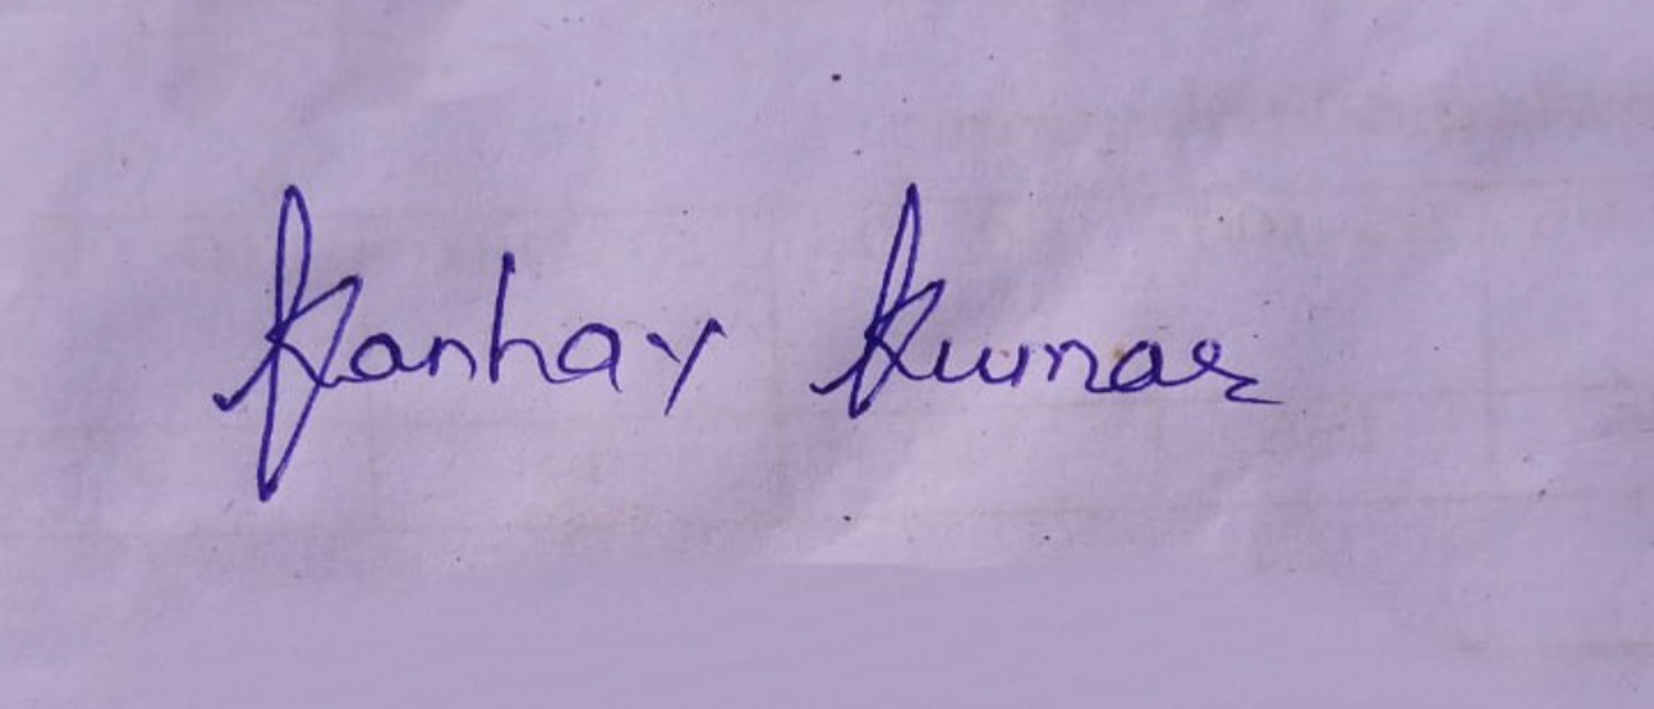 Kanhay Kumar